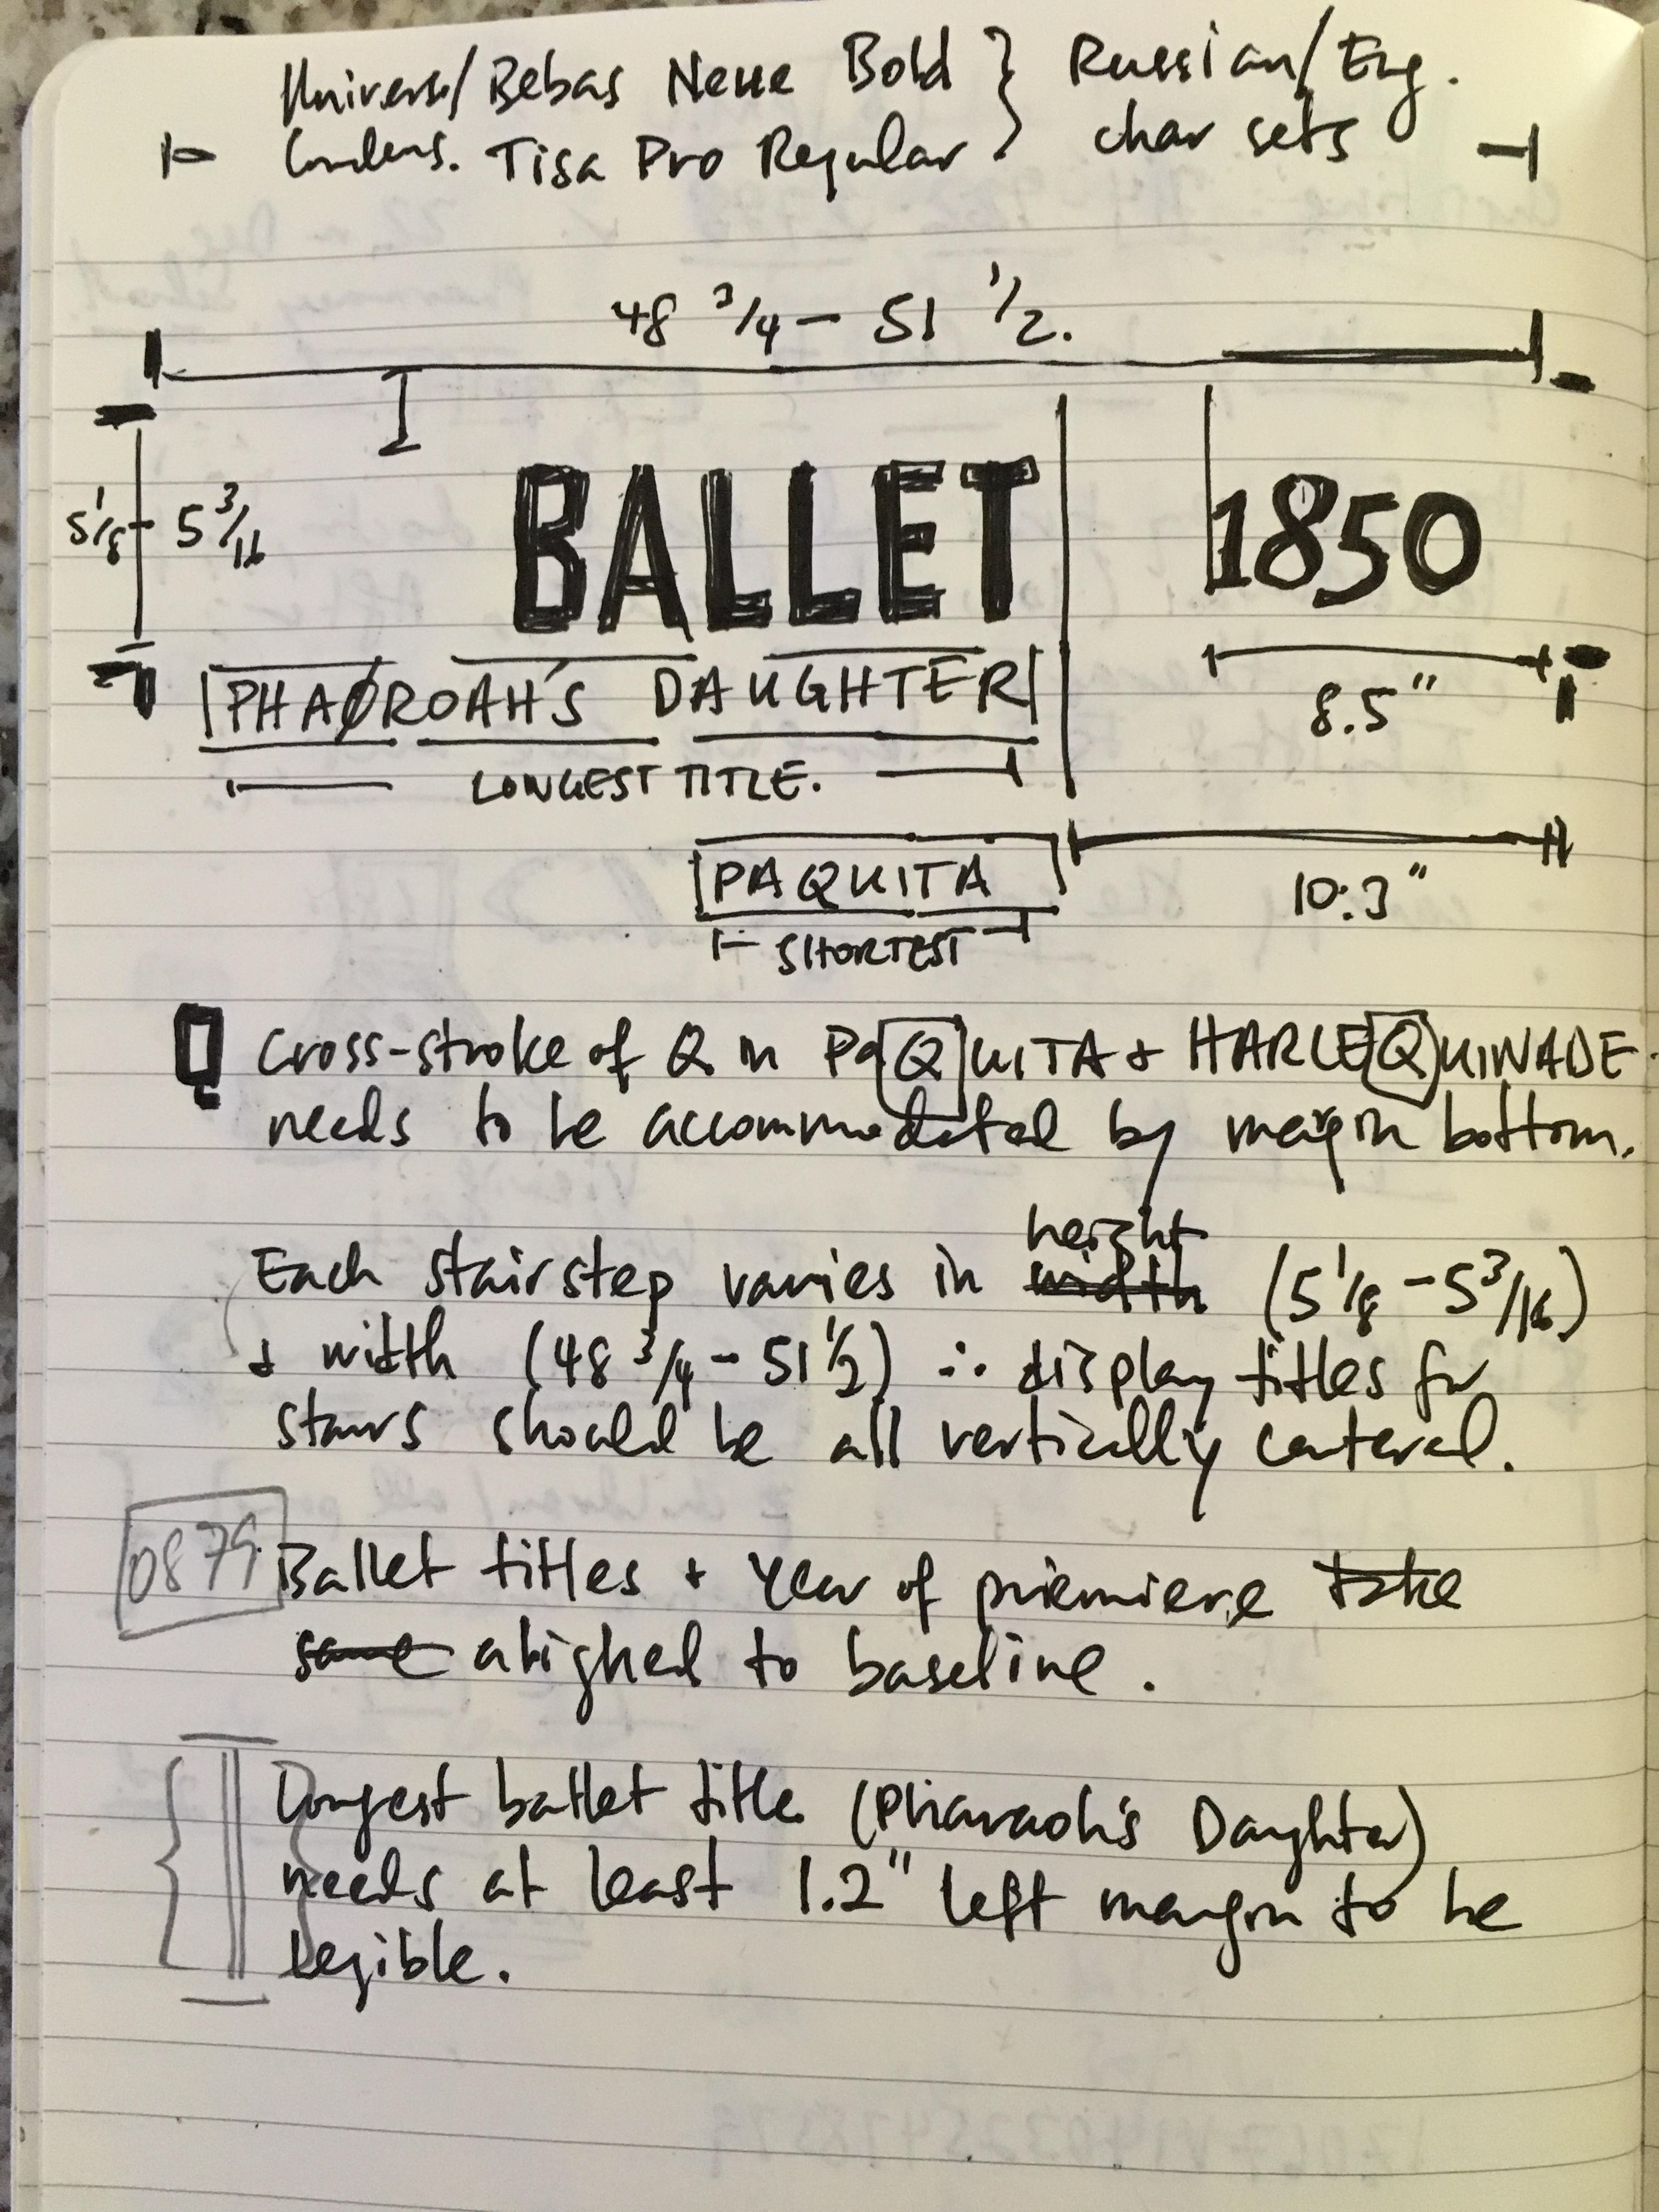 Univers/ Bebas Neue Bold } Russian/Eng.
Condens. Tisa Pro Regular } char sets
48 3/4 – 51 1/2.
5 1/8 – 5 3/16
BALLET 1850
PHAØROAH'S DAUGHTER
8.5"
LONGEST TITLE.
PAQUITA
10.3"
SHORTEST
Cross-stroke of Q in PaQUITA + HARLEQUINADE
needs to be accommodated by margin bottom.
height
Each stairstep varies in width (5 1/8 – 5 3/16)
+ width (48 3/4 – 51 1/2) ∴ display titles for
stairs should be all vertically centered.
0879
Ballet titles + year of premiere take
same aligned to baseline.
Longest ballet title (Pharaoh's Daughter)
needs at least 1.2" left margin to be
legible.